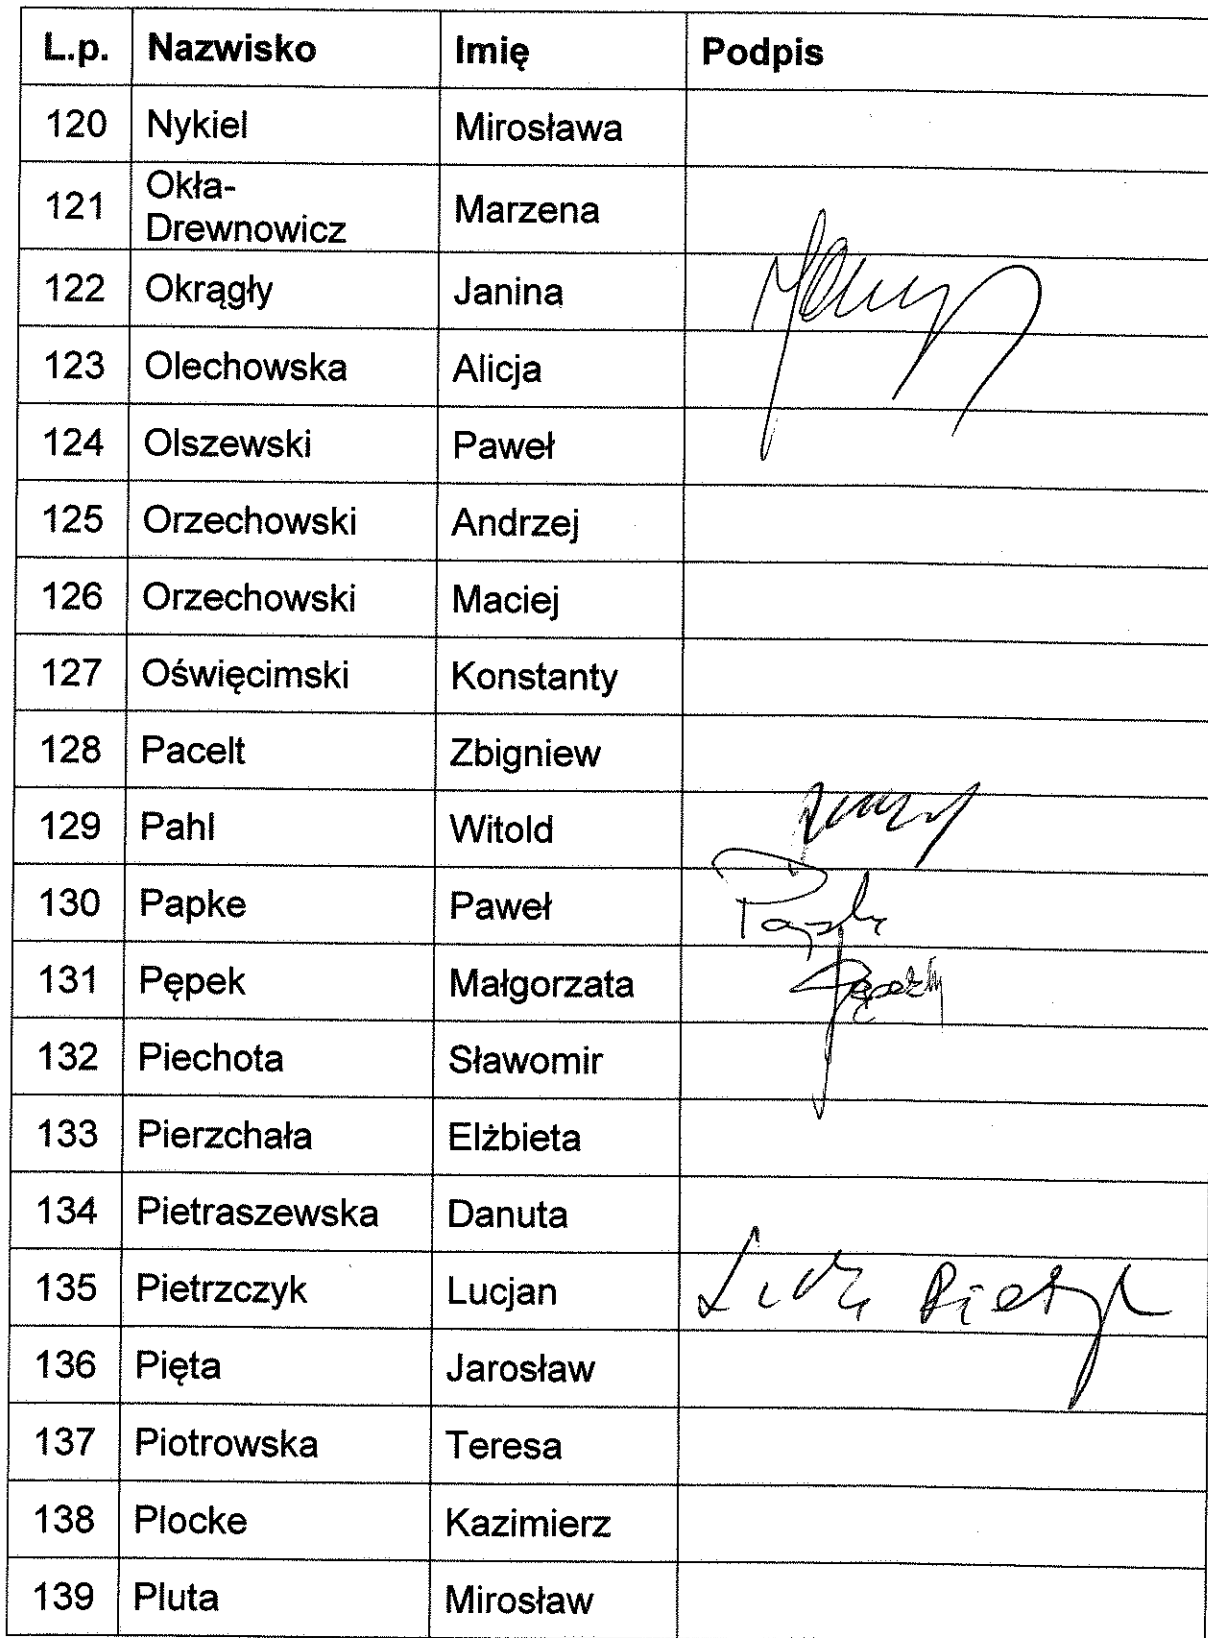 L.p. Nazwisko Imię Podpis
120 Nykiel Mirosława
121 Okła-
Drewnowicz Marzena
122 Okrągły Janina
123 Olechowska Alicja
124 Olszewski Paweł
125 Orzechowski Andrzej
126 Orzechowski Maciej
127 Oświęcimski Konstanty
128 Pacelt Zbigniew
129 Pahl Witold
130 Papke Paweł
131 Pępek Małgorzata
132 Piechota Sławomir
133 Pierzchała Elżbieta
134 Pietraszewska Danuta
135 Pietrzczyk Lucjan
136 Pięta Jarosław
137 Piotrowska Teresa
138 Plocke Kazimierz
139 Pluta Mirosław